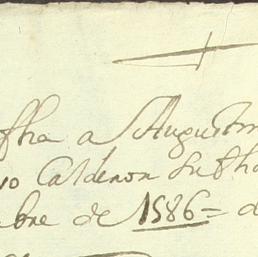 fha a Augustin
io Calderon su fho
bre de 1586=